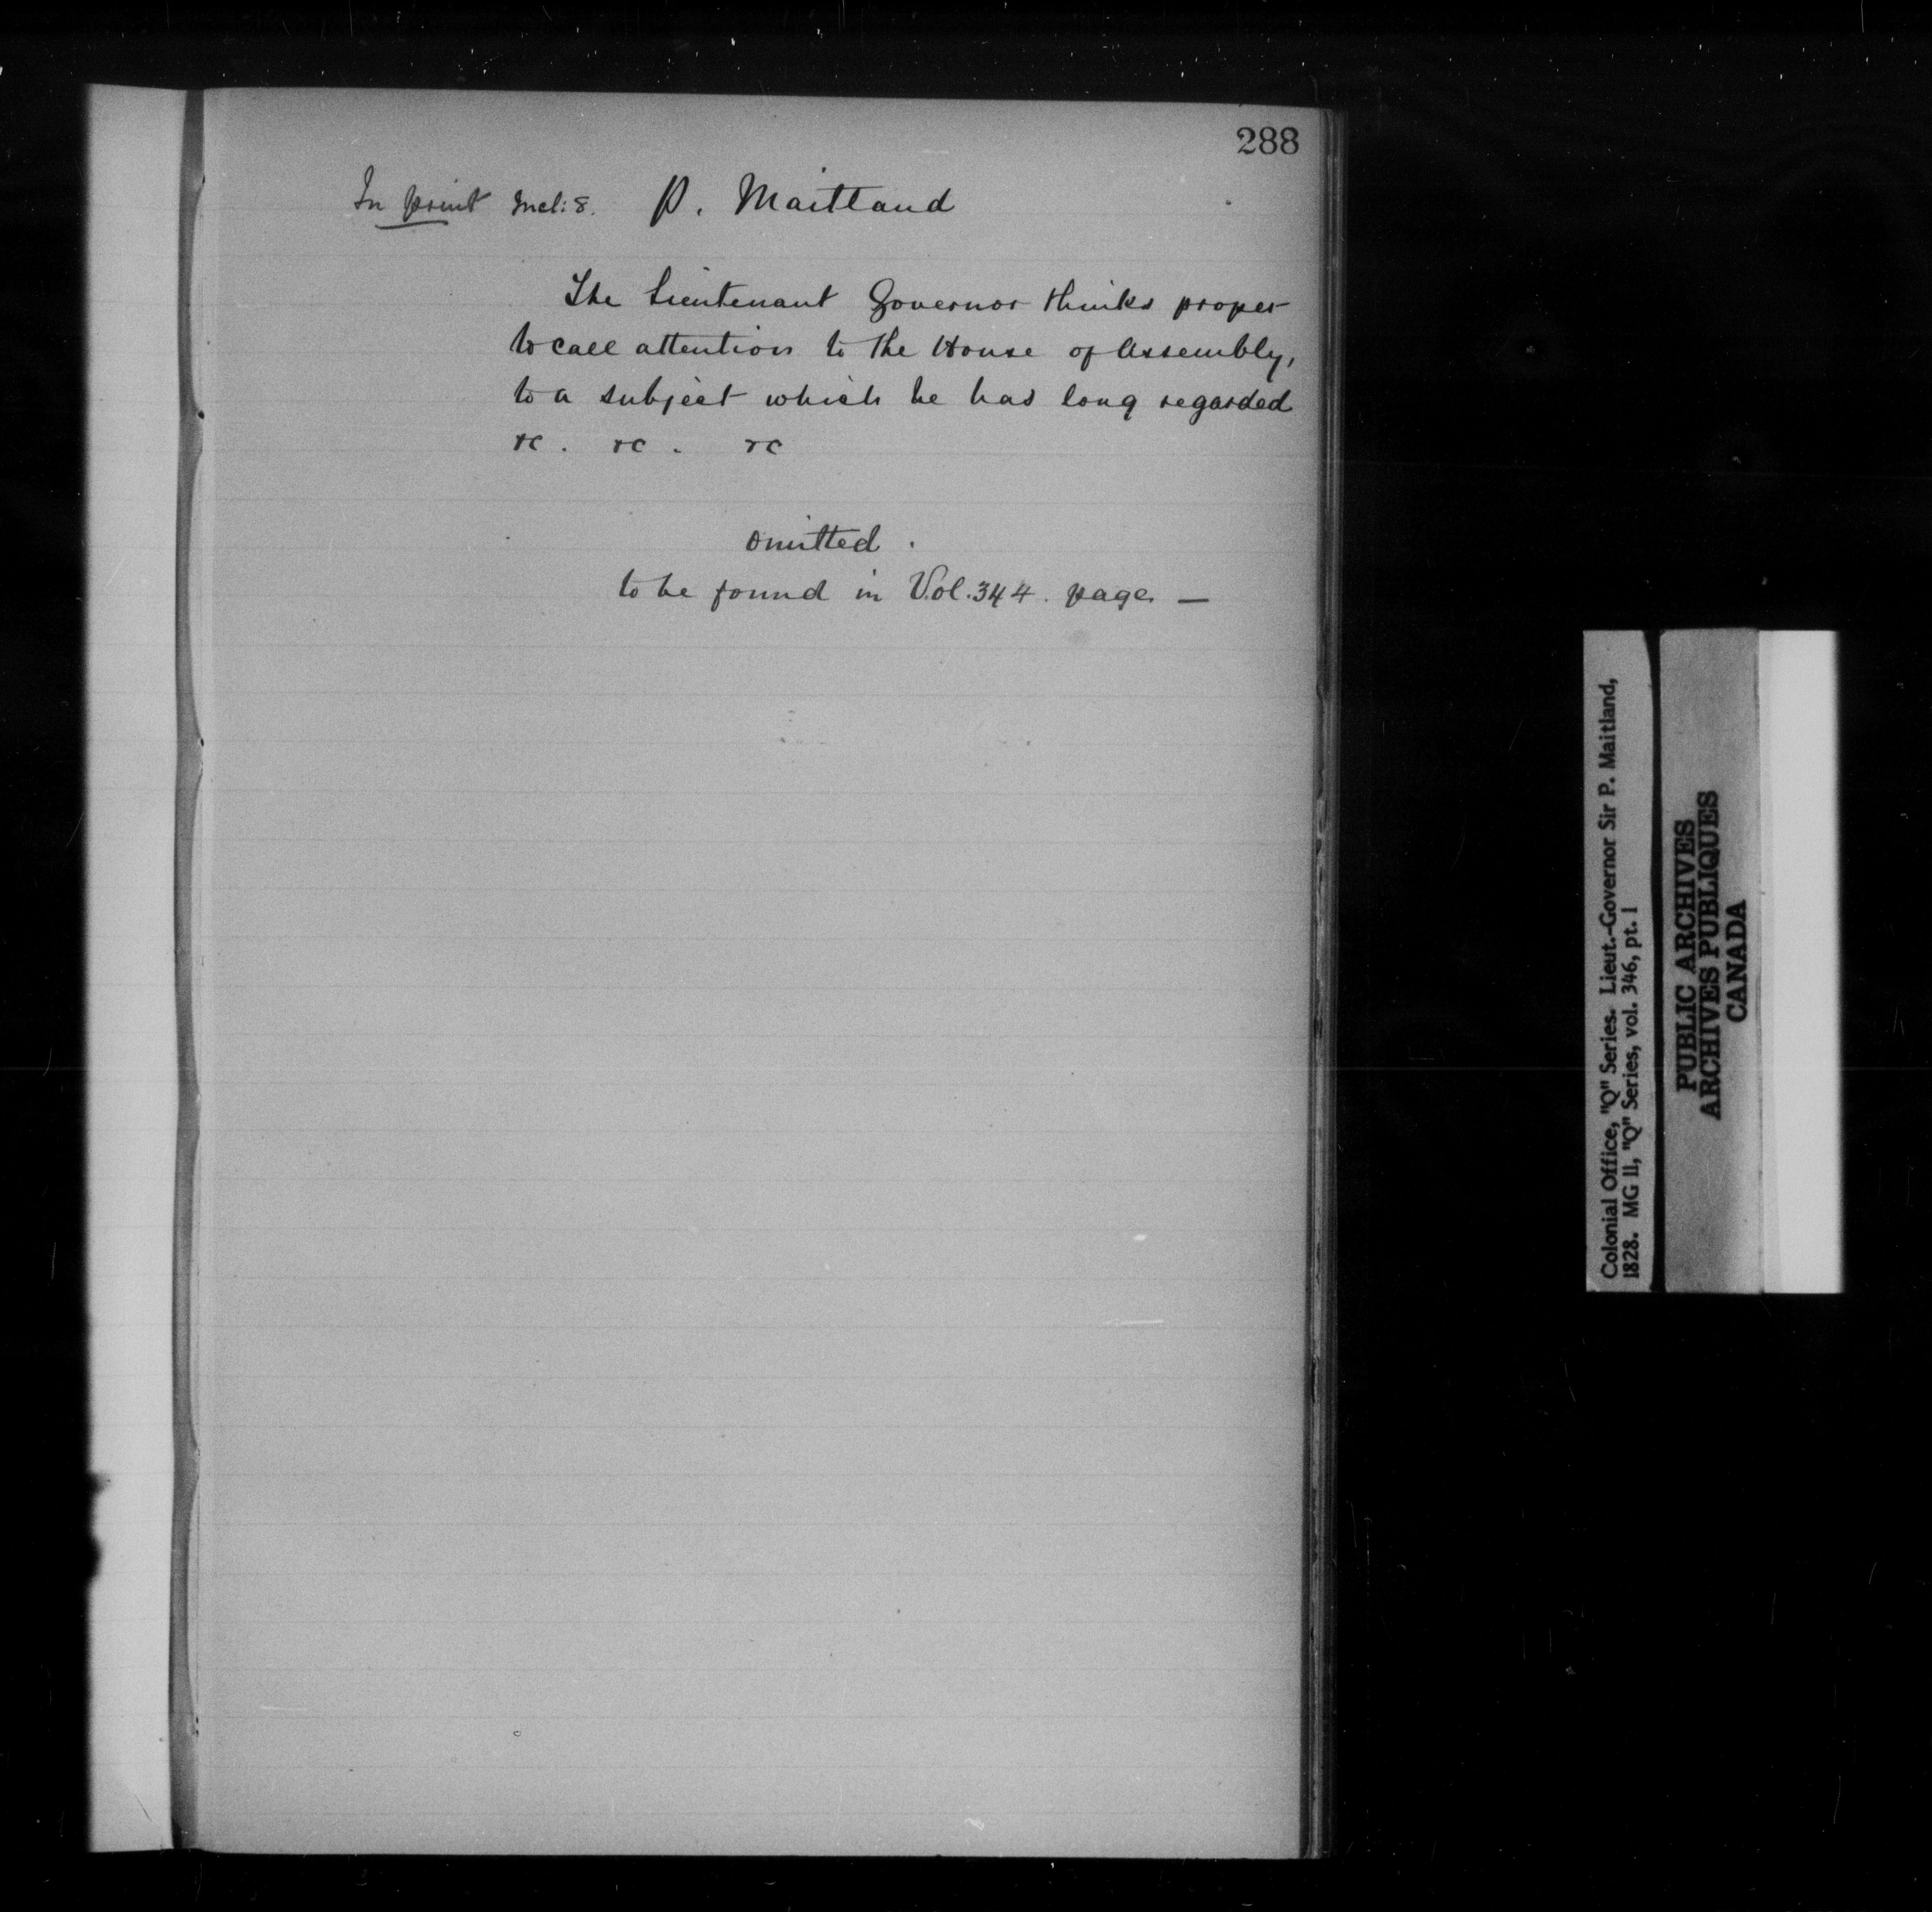 288
In print Incl: 8. P. Maitland
The Lieutenant Governor thinks proper
to call attention to the House of Assembly,
to a subject which he has long regarded
&c. &c. &c
omitted.
to be found in Vol. 344. page —
Colonial Office, "Q" Series. Lieut.-Governor Sir P. Maitland,
1828. MG 11, "Q" Series, vol. 346, pt. 1
PUBLIC ARCHIVES
ARCHIVES PUBLIQUES
CANADA